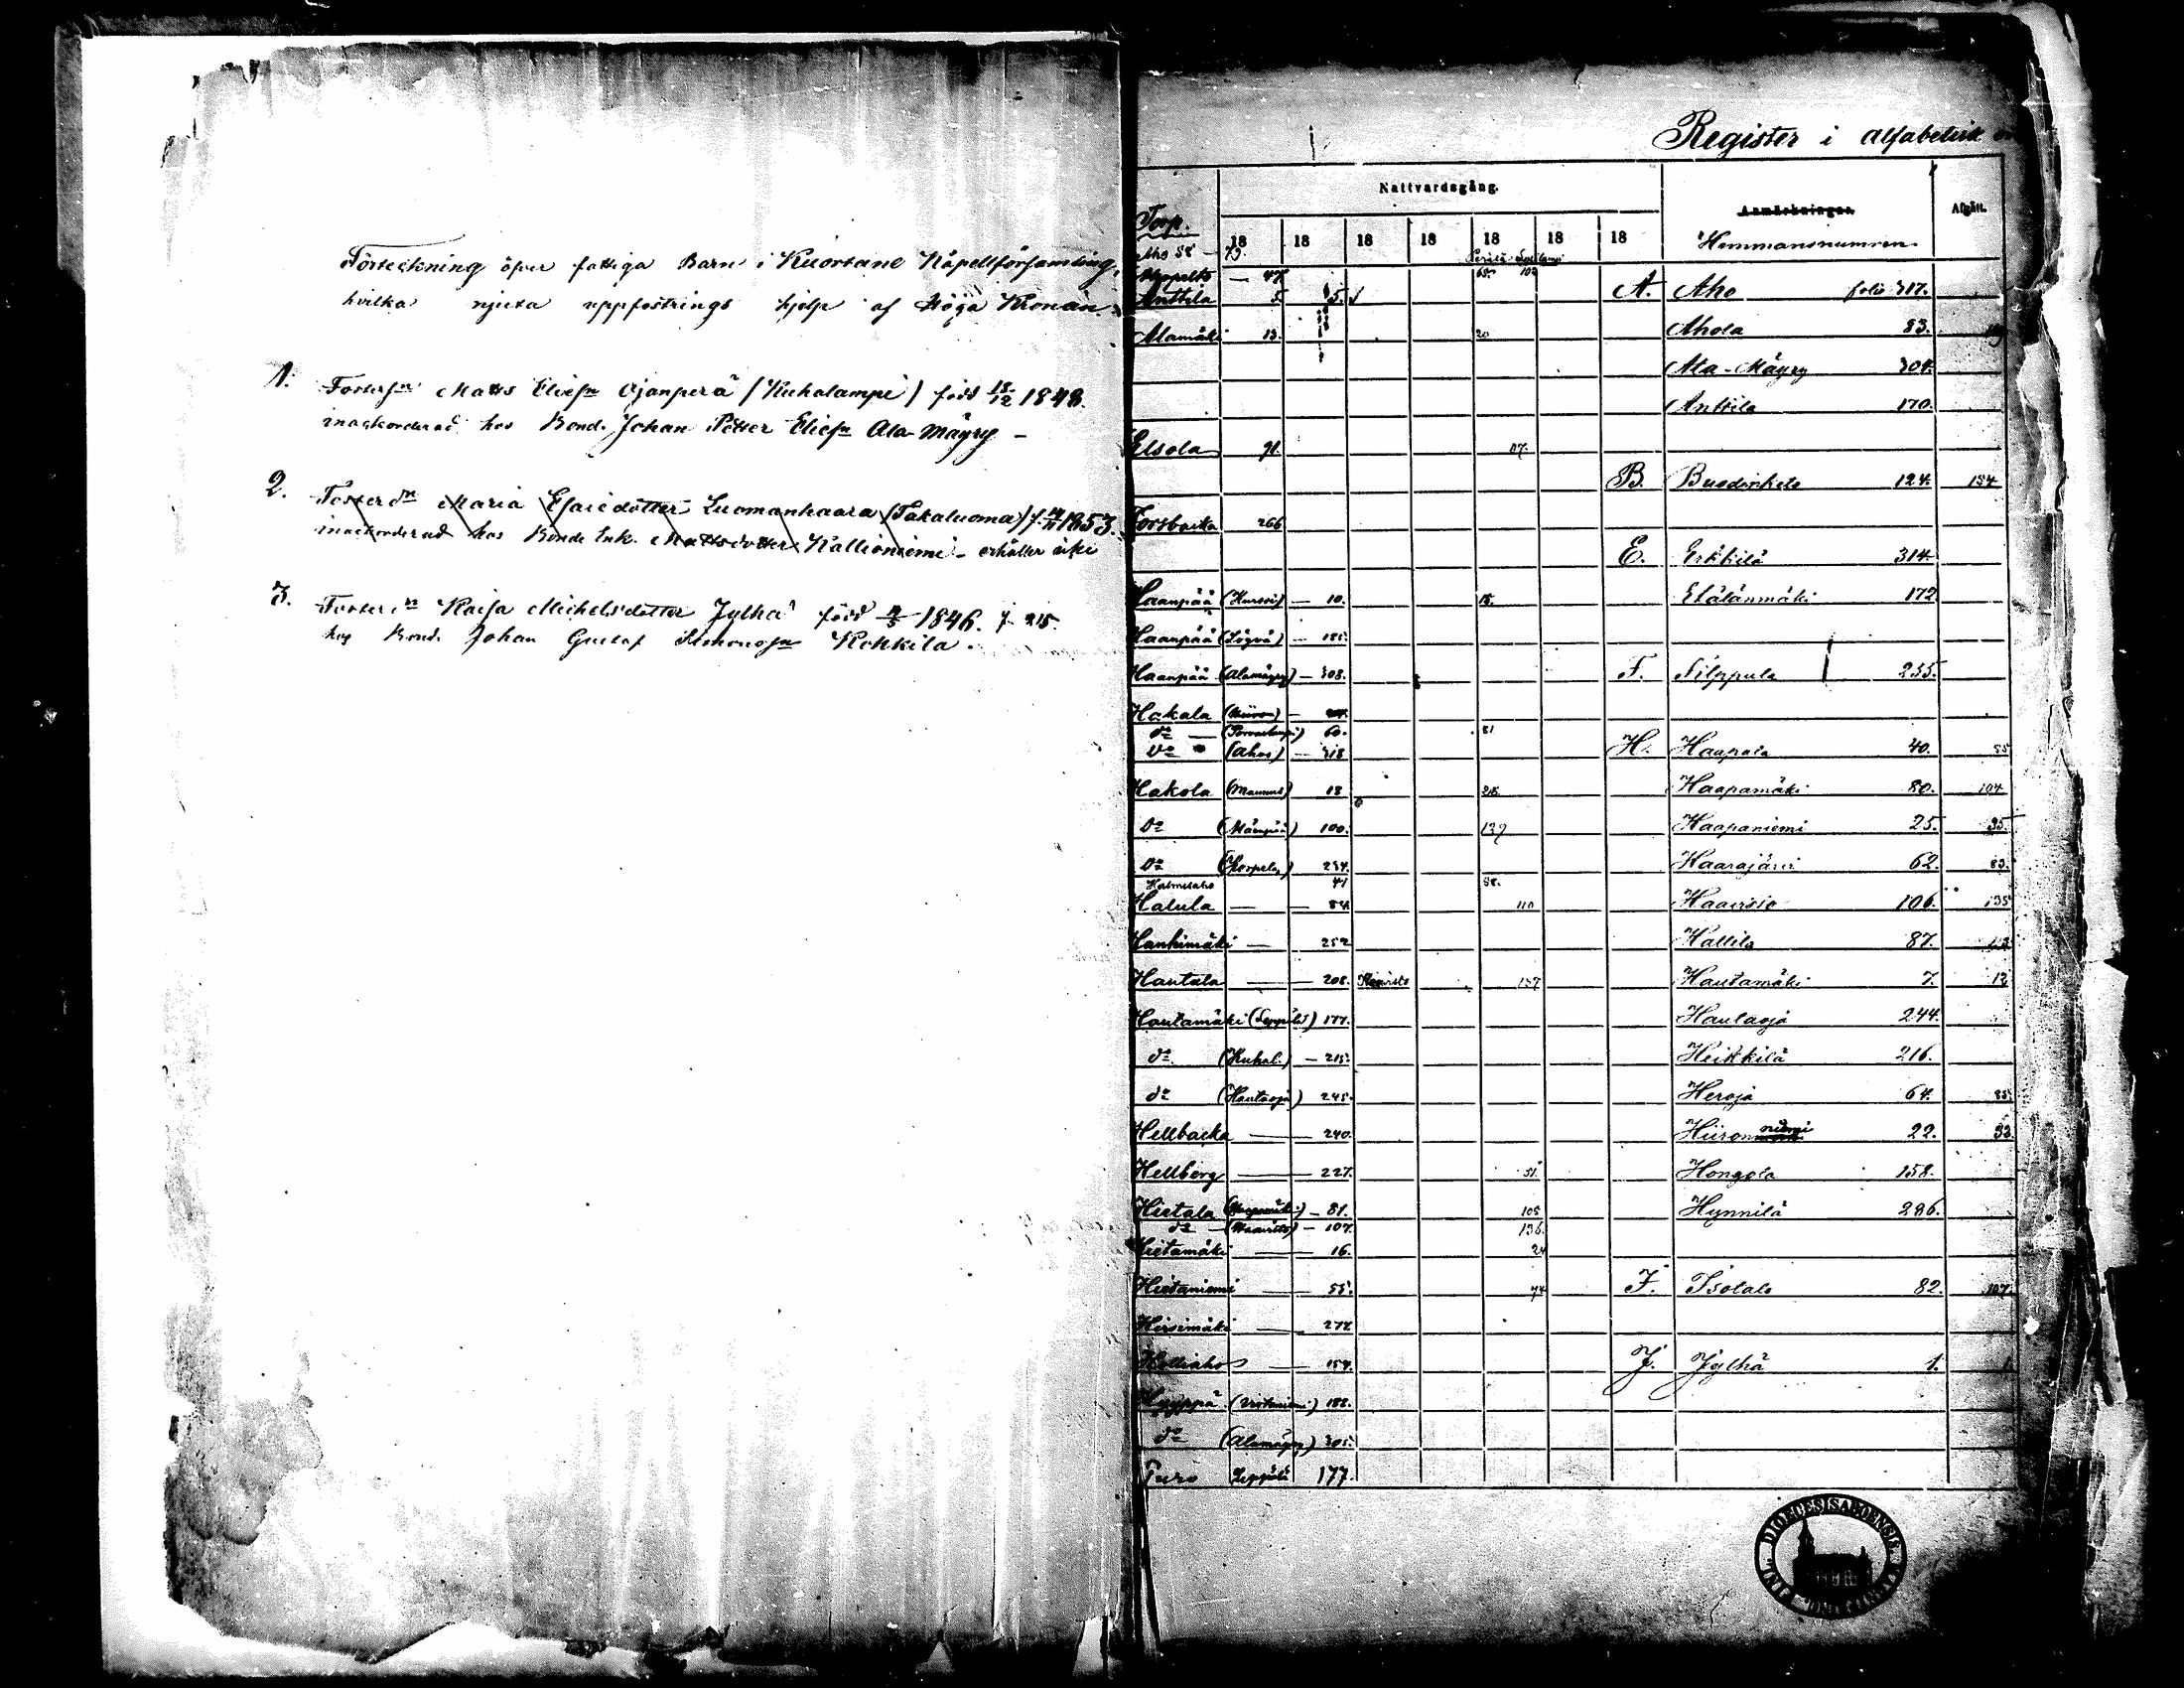 Förteckning öfver fattiga Barn i Kuortane Kapellförsamling,
hvilka njuta uppfostrings hjelp af Höga Kronan.
1. Fosters&#8203;n Matts Eliesn Ojanperä (Kuhalampi) född 13/12 1848.
inackorderad hos Bond. Johan Petter Eliesn Ala-Mäyry –
2. Fosterdn Maria Esaiedotter Luomanhaara (Takaluoma) f. 1853.
inackorderad hos Bonde Enk. Mattsdotter Kallioniemi – erhåller icke
3. Kaisa Michelsdotter Jylhä född 1846. f. 215.
hos Bond. Johan Gustaf Simonosn Kohkila.
Register i alfabetisk
Nattvardsgång.
Anmärkningar.
Afgått.
Torp.
18 18 18 18 18 18 18
Hemmansnumren
Aho 58 – 73.
— 47
Anttila 5 5. A. Aho folio 317.
Alamäki 13. 20 Ahola 83.
Ala-Mäyry 304.
Anttila 170.
Elsola 91. 117.
B. 124. 154
Forsbacka 266
E. Erkkilä 314.
Haanpää (Kurssi) — 10. 18. Etälänmäki 172
Haanpää — 185.
Haanpää (Alamäyry) — 308. F. Filppula 255.
Hakala
do — 60. 81
Do (Ahos) — 318 H. Haapala 40. 55
Hakola (Mannus) 18 28. Haapamäki 80. 104
Do (Mäenpää) 100. 139 Haapaniemi 25. 35.
Do (Korpela) 234. Haarajärvi 62. 83.
Kalmetaho 41 58.
Halula — — 84 110 Haavisto 106. 135
Hankimäki — 252 Kallila 87.
Hautala — 208. Haavisto 137 Hautamäki 7. 13
Hautamäki (Leppälä) 177. Hautaoja 244.
do (Kuhal.) — 215. Heikkilä 216.
do (Hautaoja) 245. Heroja 64. 85.
Hellbacka — 240. Hiironniemi 22. 32.
Hellberg — 227. 51. Hongola 158.
Hietala (Haapamäki) — 81. 105 Hynnilä 296.
do — (Haavisto) — 107. 136.
Hietamäki — 16. 24
Hietaniemi — 55. 74 I. Isotalo 82. 107.
Hirsimäki — 277
Holliaho — 154. J. Jylhä 1. 1.
Hyyppä 188.
do (Alamäyry) 305.
Puro Leppälä 177.
DIOECESIS ABOENSIS